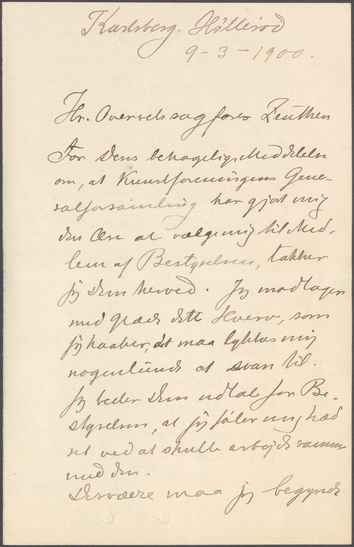 Karlsberg. Hillerød
9-3-1900.
Hr. Overretssagfører Zeuthen
For Deres behagelige Meddelelse
om, at Kunstforeningens Gene-
ralforsamling har gjort mig
den Ære at vælge mig til Med-
lem af Bestyrelsen, takker
jeg Dem herved. Jeg modtager
med Glæde dette Hverv, som
jeg haaber, det maa lykkes mig
nogenlunde at svare til.
Jeg beder Dem udtale for Be-
styrelsen, at jeg føler mig hæd
ret ved at skulle arbejde sammen
med den.
Desværre maa jeg begynde